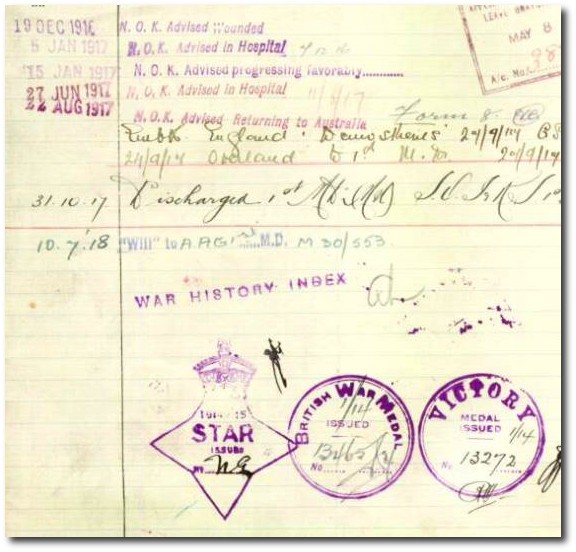 LEAVE GRAT
MAY 8
A/c. No. 38
19 DEC 1916 N. O. K. Advised Wounded
5 JAN 1917 N. O. K. Advised in Hospital
15 JAN 1917 N. O. K. Advised progressing favorably............
27 JUN 1917 N. O. K. Advised in Hospital
22 AUG 1917 N.O.K. Advised Returning to Australia Form 8.
England "Demosthenes" 24/9/17
24/9/17 Overland to 1st M.D. 24/9/17
31.10.17 Discharged 1st M.D.
10.7.18 "Will" to A.A.G. 1st M.D. M 30/553
WAR HISTORY INDEX
1914-15
STAR
ISSUED
NY N.E.
BRITISH WAR MEDAL
1/14
ISSUED
No
VICTORY
MEDAL
ISSUED 1/14
No 13272